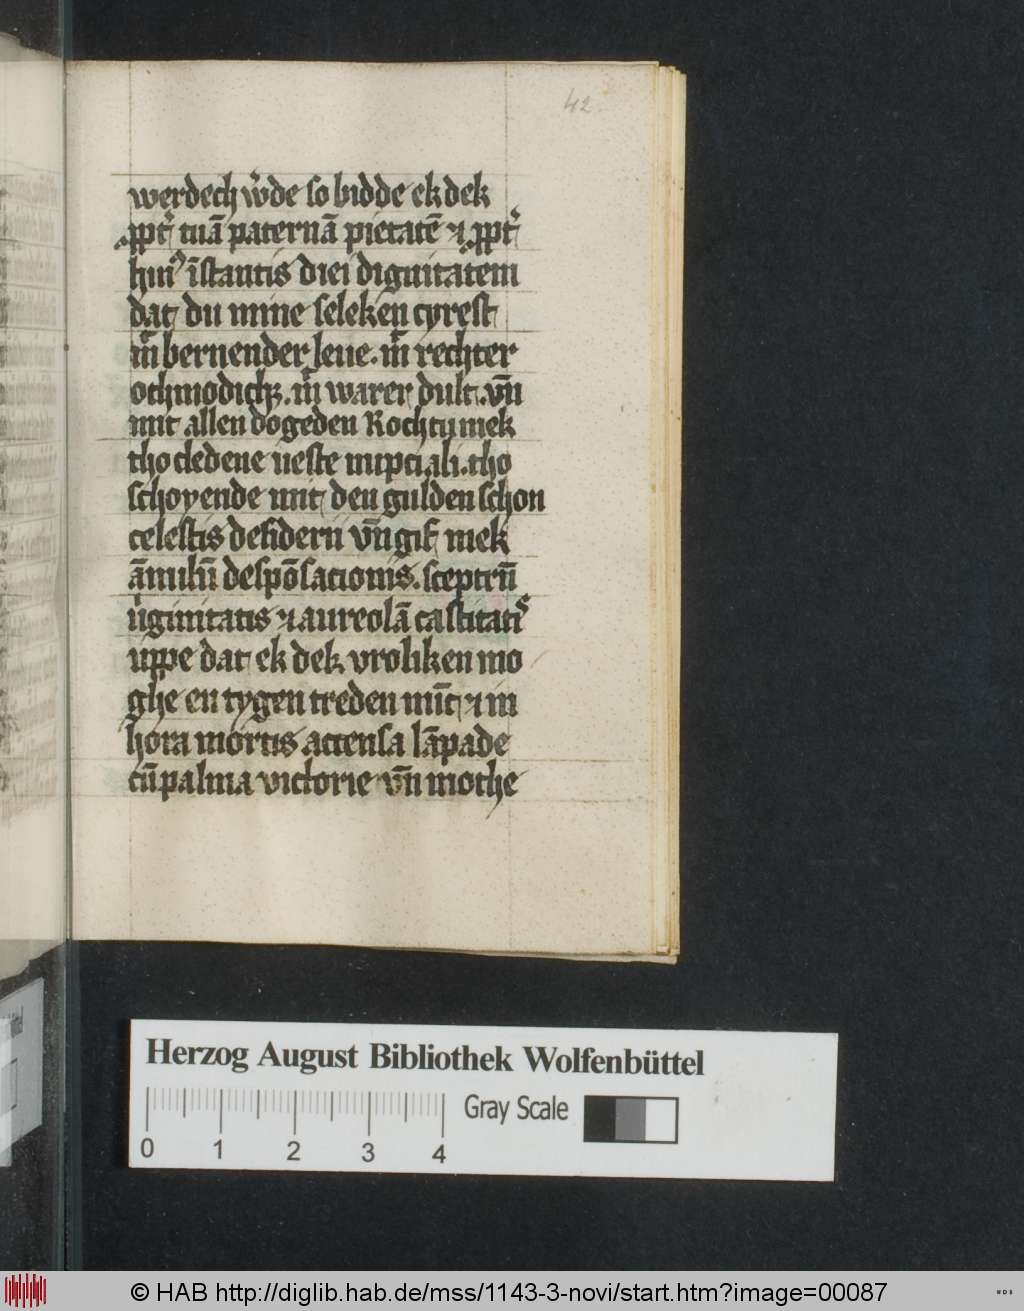 42
werdech w̾de so bidde ek dek
ꝓpt̾ tuā paternā pietatē ⁊ ꝓpt̾
hui⁹ īstantis diei dignitatem
dat du mine seleken cyrest
m̄ bernender leue. m̄ rechter
othmodich. m̄ warer dult. vn̄
mit allen dogeden Rochtu mek
tho cledene ueste nupciali. tho
schoyende mit den gulden schon
celestis desiderii vn̄ gif mek
ānulū despōsationis. sceptrū
u̾ginitatis ⁊ aureolā castitatis
uppe dat ek dek vroliken mo
ghe en tygen treden nūc ⁊ in
hora mortis accensa lāpade
cū palma victorie vn̄ mothe
Herzog August Bibliothek Wolfenbüttel
Gray Scale
0 1 2 3 4
© HAB http://diglib.hab.de/mss/1143-3-novi/start.htm?image=00087